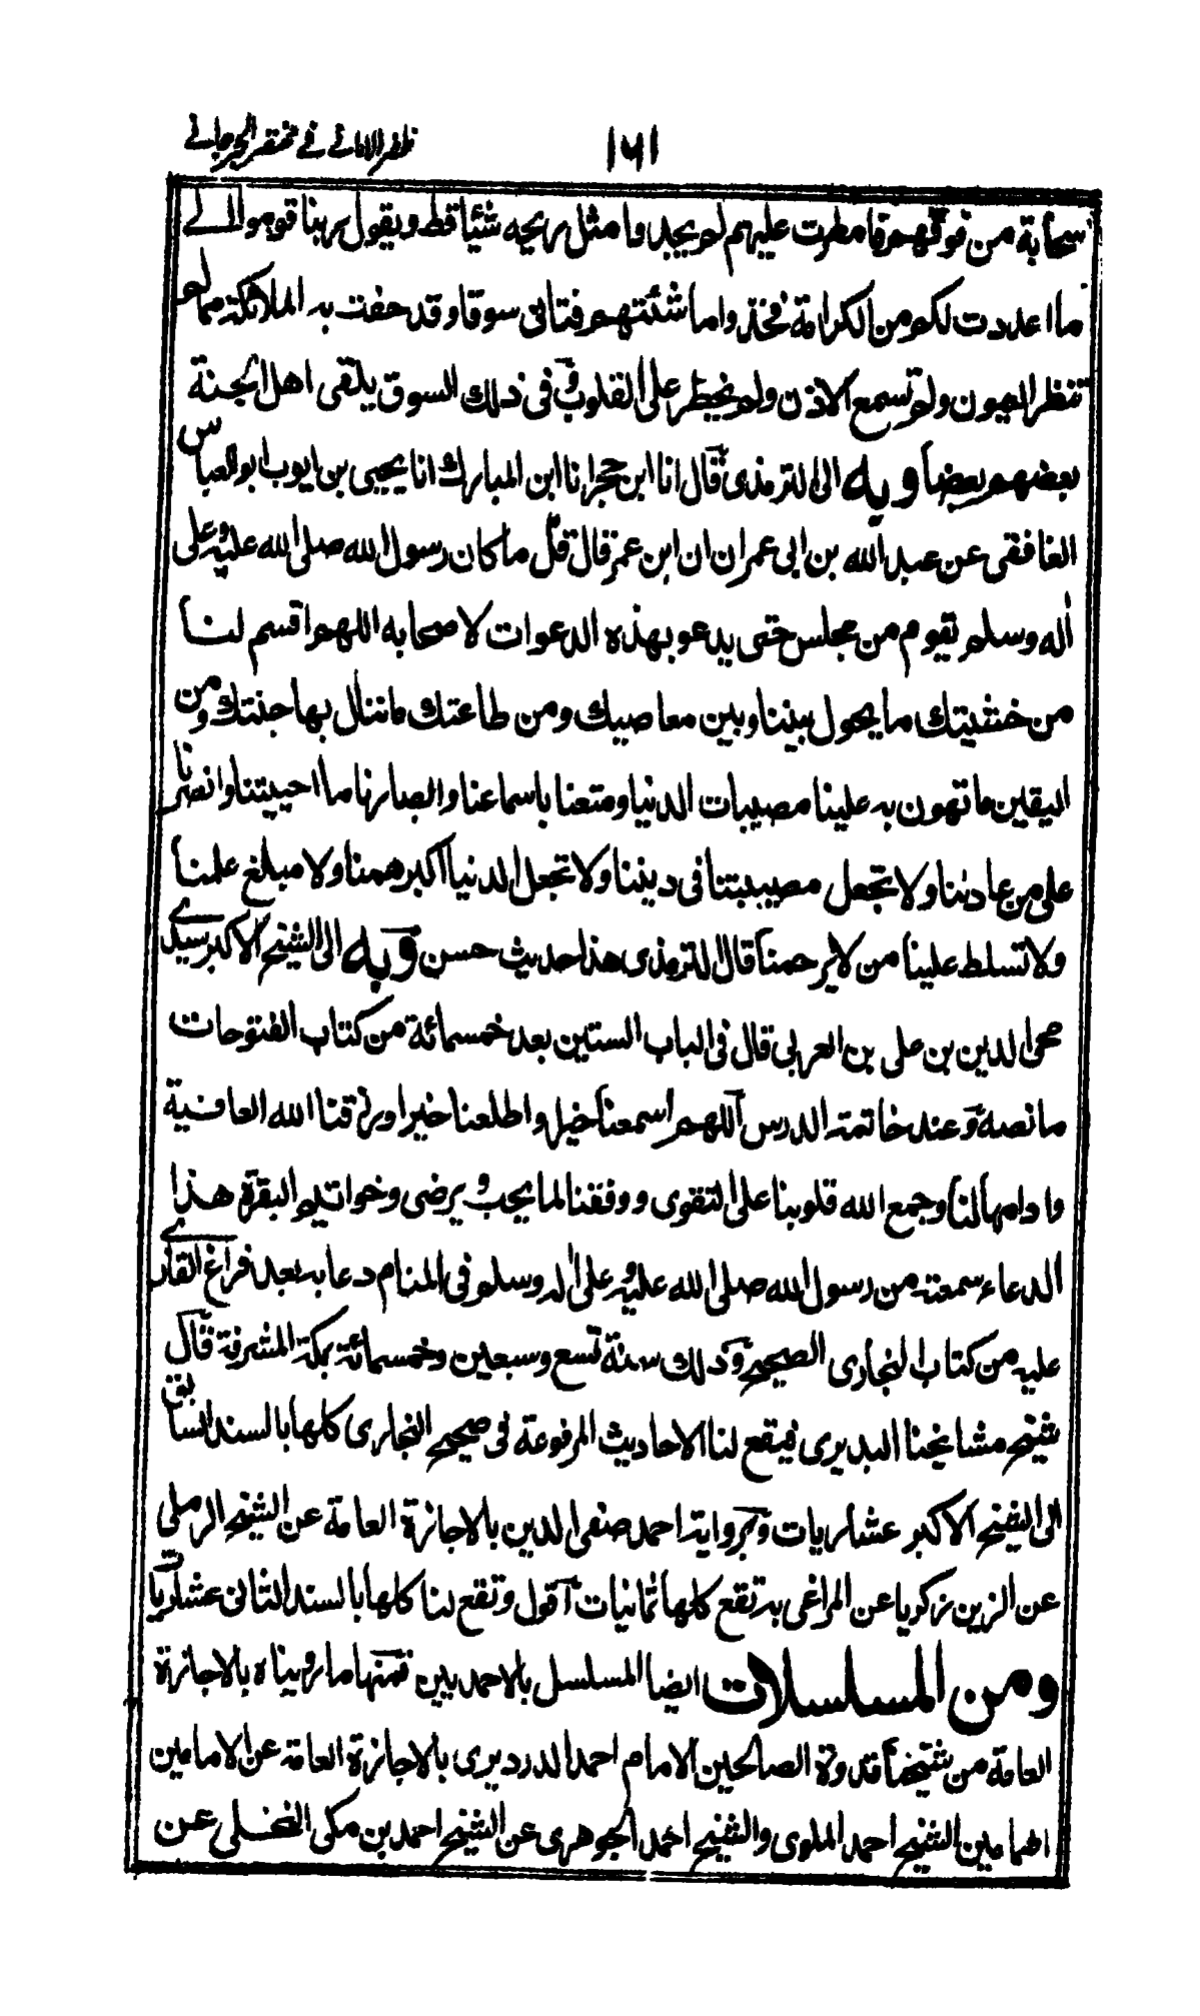 ظفر الاماني في مختصر الجرجاني
١٦١
سحابة من فوقهم فامطرت عليهم لم يجدوا مثل ريحه شيئا قط ويقول ربنا قوموا الى
ما اعددت لكم من الكرامة فخذوا ما شئتم فنأتى سوقا وقد حفت به الملائكة مما لم
تنظر العيون ولم تسمع الاذن ولم يخطر على القلوب وفى ذلك السوق يلقى اهل الجنة
بعضهم بعضا وبه الى الترمذى قال انا ابن حجر انا ابن المبارك انا يحيى بن ايوب ابو العباس
الغافقى عن عبد الله بن ابى عمران ان ابن عمر قال قل ما كان رسول الله صلى الله عليه وعلى
أله وسلم يقوم من مجلس حتى يدعو بهذه الدعوات لاصحابه اللهم اقسم لنا
من خشيتك ما يحول بيننا وبين معاصيك ومن طاعتك ما ننال بها جنتك ومن
اليقين ما تهون به علينا مصيبات الدنيا ومتعنا باسماعنا وابصارنا ما احييتنا وانصرنا
على من عادانا ولا تجعل مصيبتنا فى ديننا ولا تجعل الدنيا اكبر همنا ولا مبلغ علمنا
ولا تسلط علينا من لا يرحمنا قال الترمذى هذا حديث حسن وبه الى الشيخ الاكبر سيدى
محى الدين بن على بن العربى قال فى الباب الستين بعد خمسمائة من كتاب الفتوحات
ما نصه وعند خاتمة الدرس اللهم اسمعنا خيرا واطلعنا خيرا ورزقنا الله العافية
وادامها لنا وجمع الله قلوبنا على التقوى ووفقنا لما يحب ويرضى وخواتيم البقرة هذا
الدعاء سمعته من رسول الله صلى الله عليه وعلى اله وسلم فى المنام دعا به بعد فراغ القارى
عليه من كتاب البخارى الصحيح وذلك سنة تسع وسبعين وخمسمائة بمكة المشرفة قال
شيخ مشايخنا البديرى فيقع لنا الاحاديث المرفوعة فى صحيح البخارى كلها بالسند السابق
الى الشيخ الاكبر عشاريات وبرواية احمد صفى الدين بالاجازة العامة عن الشيخ الرملى
عن الزين زكريا عن المراغى به تقع كلها ثمانيات اقول وتقع لنا كلها بالسند الثانى عشاريات
ومن المسلسلات ايضا المسلسل بالاحمديين فمنها ما رويناه بالاجازة
العامة من شيخنا قدوة الصالحين الامام احمد الدرديرى بالاجازة العامة عن الامامين
الهمامين الشيخ احمد الملوى والشيخ احمد الجوهرى عن الشيخ احمد بن مكى النخلى عن